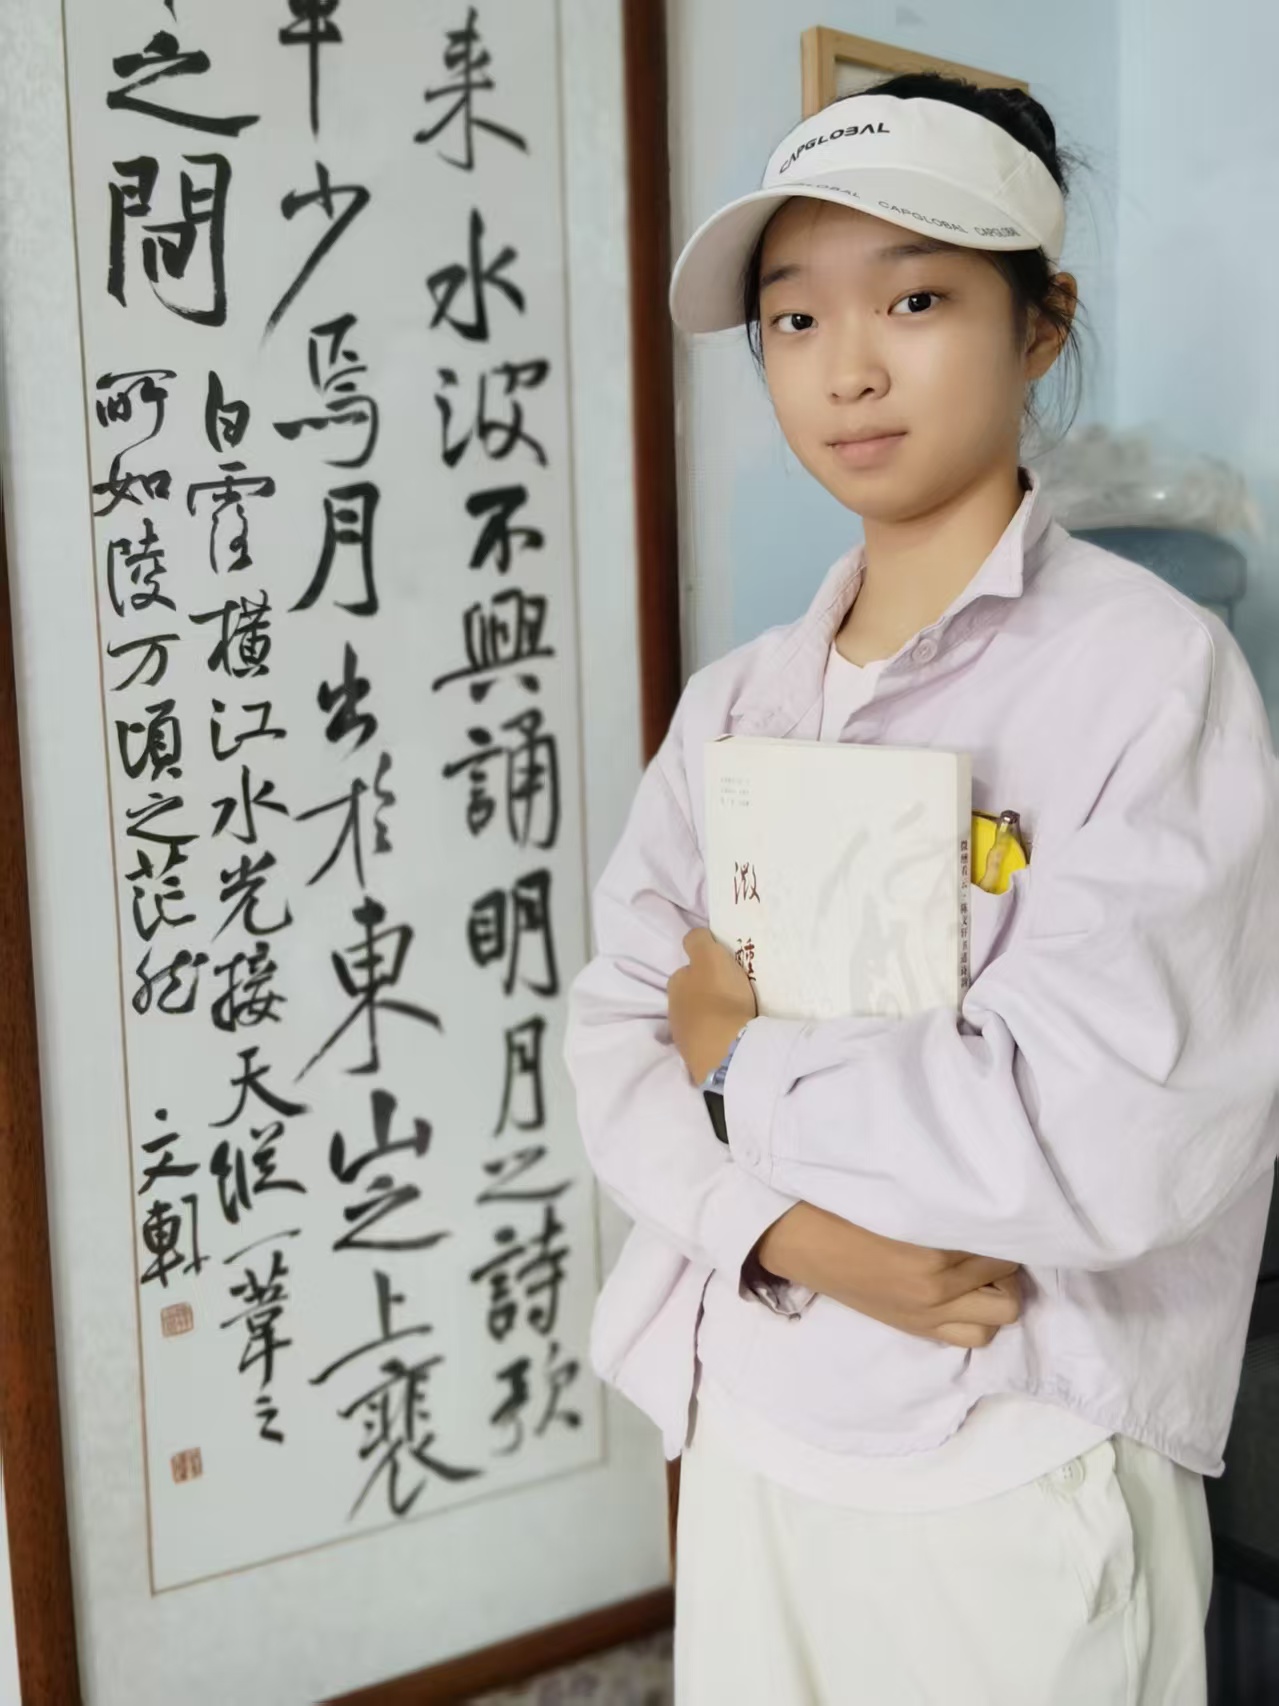 来水波不興誦明月之詩歌
少焉月出於東山之上裴
之間
白露橫江水光接天縱一葦之
所如陵万頃之茫然
文軒
CAPGLOBAL
GLOBAL CAPGLOBAL CAPGLOBAL
微醺
微醺看云·陈文轩书道诗词